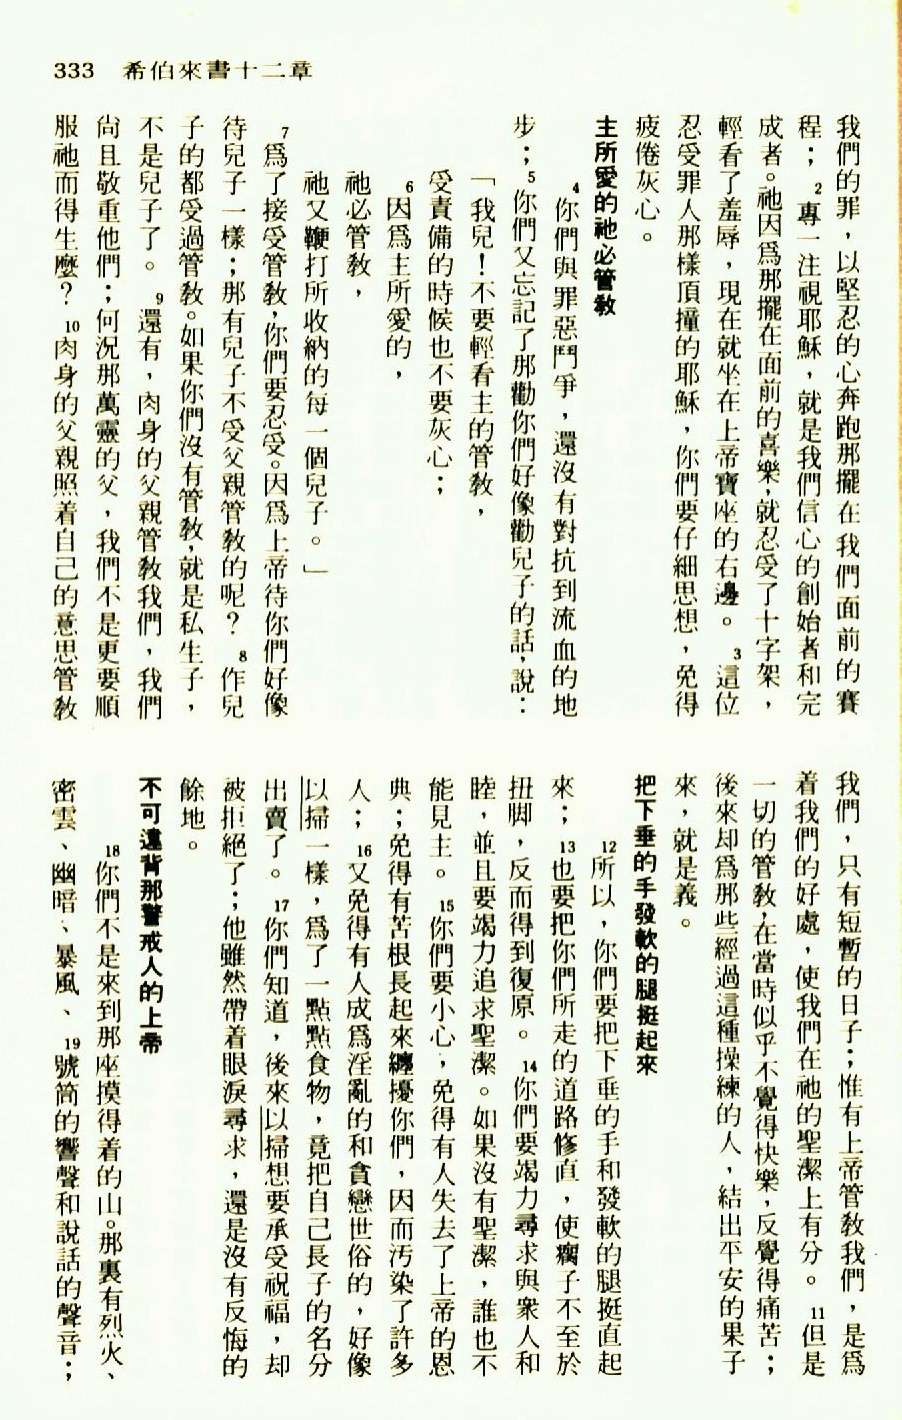 333 希伯來書十二章
我們的罪，以堅忍的心奔跑那擺在我們面前的賽
程；2專一注視耶穌，就是我們信心的創始者和完
成者。祂因爲那擺在面前的喜樂，就忍受了十字架，
輕看了羞辱，現在就坐在上帝寶座的右邊。3這位
忍受罪人那樣頂撞的耶穌，你們要仔細思想，免得
疲倦灰心。
主所愛的祂必管敎
4你們與罪惡鬥爭，還沒有對抗到流血的地
步；5你們又忘記了那勸你們好像勸兒子的話，說：
「我兒！不要輕看主的管敎，
受責備的時候也不要灰心；
6因爲主所愛的，
祂必管敎，
祂又鞭打所收納的每一個兒子。」
7爲了接受管敎，你們要忍受。因爲上帝待你們好像
待兒子一樣；那有兒子不受父親管敎的呢？8作兒
子的都受過管敎。如果你們沒有管敎，就是私生子，
不是兒子了。9還有，肉身的父親管敎我們，我們
尙且敬重他們；何況那萬靈的父，我們不是更要順
服祂而得生麼？10肉身的父親照着自己的意思管敎
我們，只有短暫的日子；惟有上帝管敎我們，是爲
着我們的好處，使我們在祂的聖潔上有分。11但是
一切的管敎，在當時似乎不覺得快樂，反覺得痛苦；
後來却爲那些經過這種操練的人，結出平安的果子
來，就是義。
把下垂的手發軟的腿挺起來
12所以，你們要把下垂的手和發軟的腿挺直起
來；13也要把你們所走的道路修直，使瘸子不至於
扭脚，反而得到復原。14你們要竭力尋求與衆人和
睦，並且要竭力追求聖潔。如果沒有聖潔，誰也不
能見主。15你們要小心，免得有人失去了上帝的恩
典；免得有苦根長起來纏擾你們，因而汚染了許多
人；16又免得有人成爲淫亂的和貪戀世俗的，好像
以掃一樣，爲了一點點食物，竟把自己長子的名分
出賣了。17你們知道，後來以掃想要承受祝福，却
被拒絕了；他雖然帶着眼淚尋求，還是沒有反悔的
餘地。
不可違背那警戒人的上帝
18你們不是來到那座摸得着的山。那裏有烈火、
密雲、幽暗、暴風、19號筒的響聲和說話的聲音；